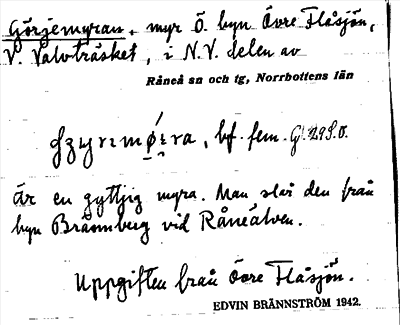 Görjemyran, myr Ö. byn Övre Flåsjön,
V. Valvträsket, i N.V. delen av
Råneå sn och tg, Norrbottens län
bf. fem.
är en gyttjig myra. Man slår den från
byn Brännberg vid Råneälven.
Uppgiften från Övre Flåsjön.
EDVIN BRÄNNSTRÖM 1942.